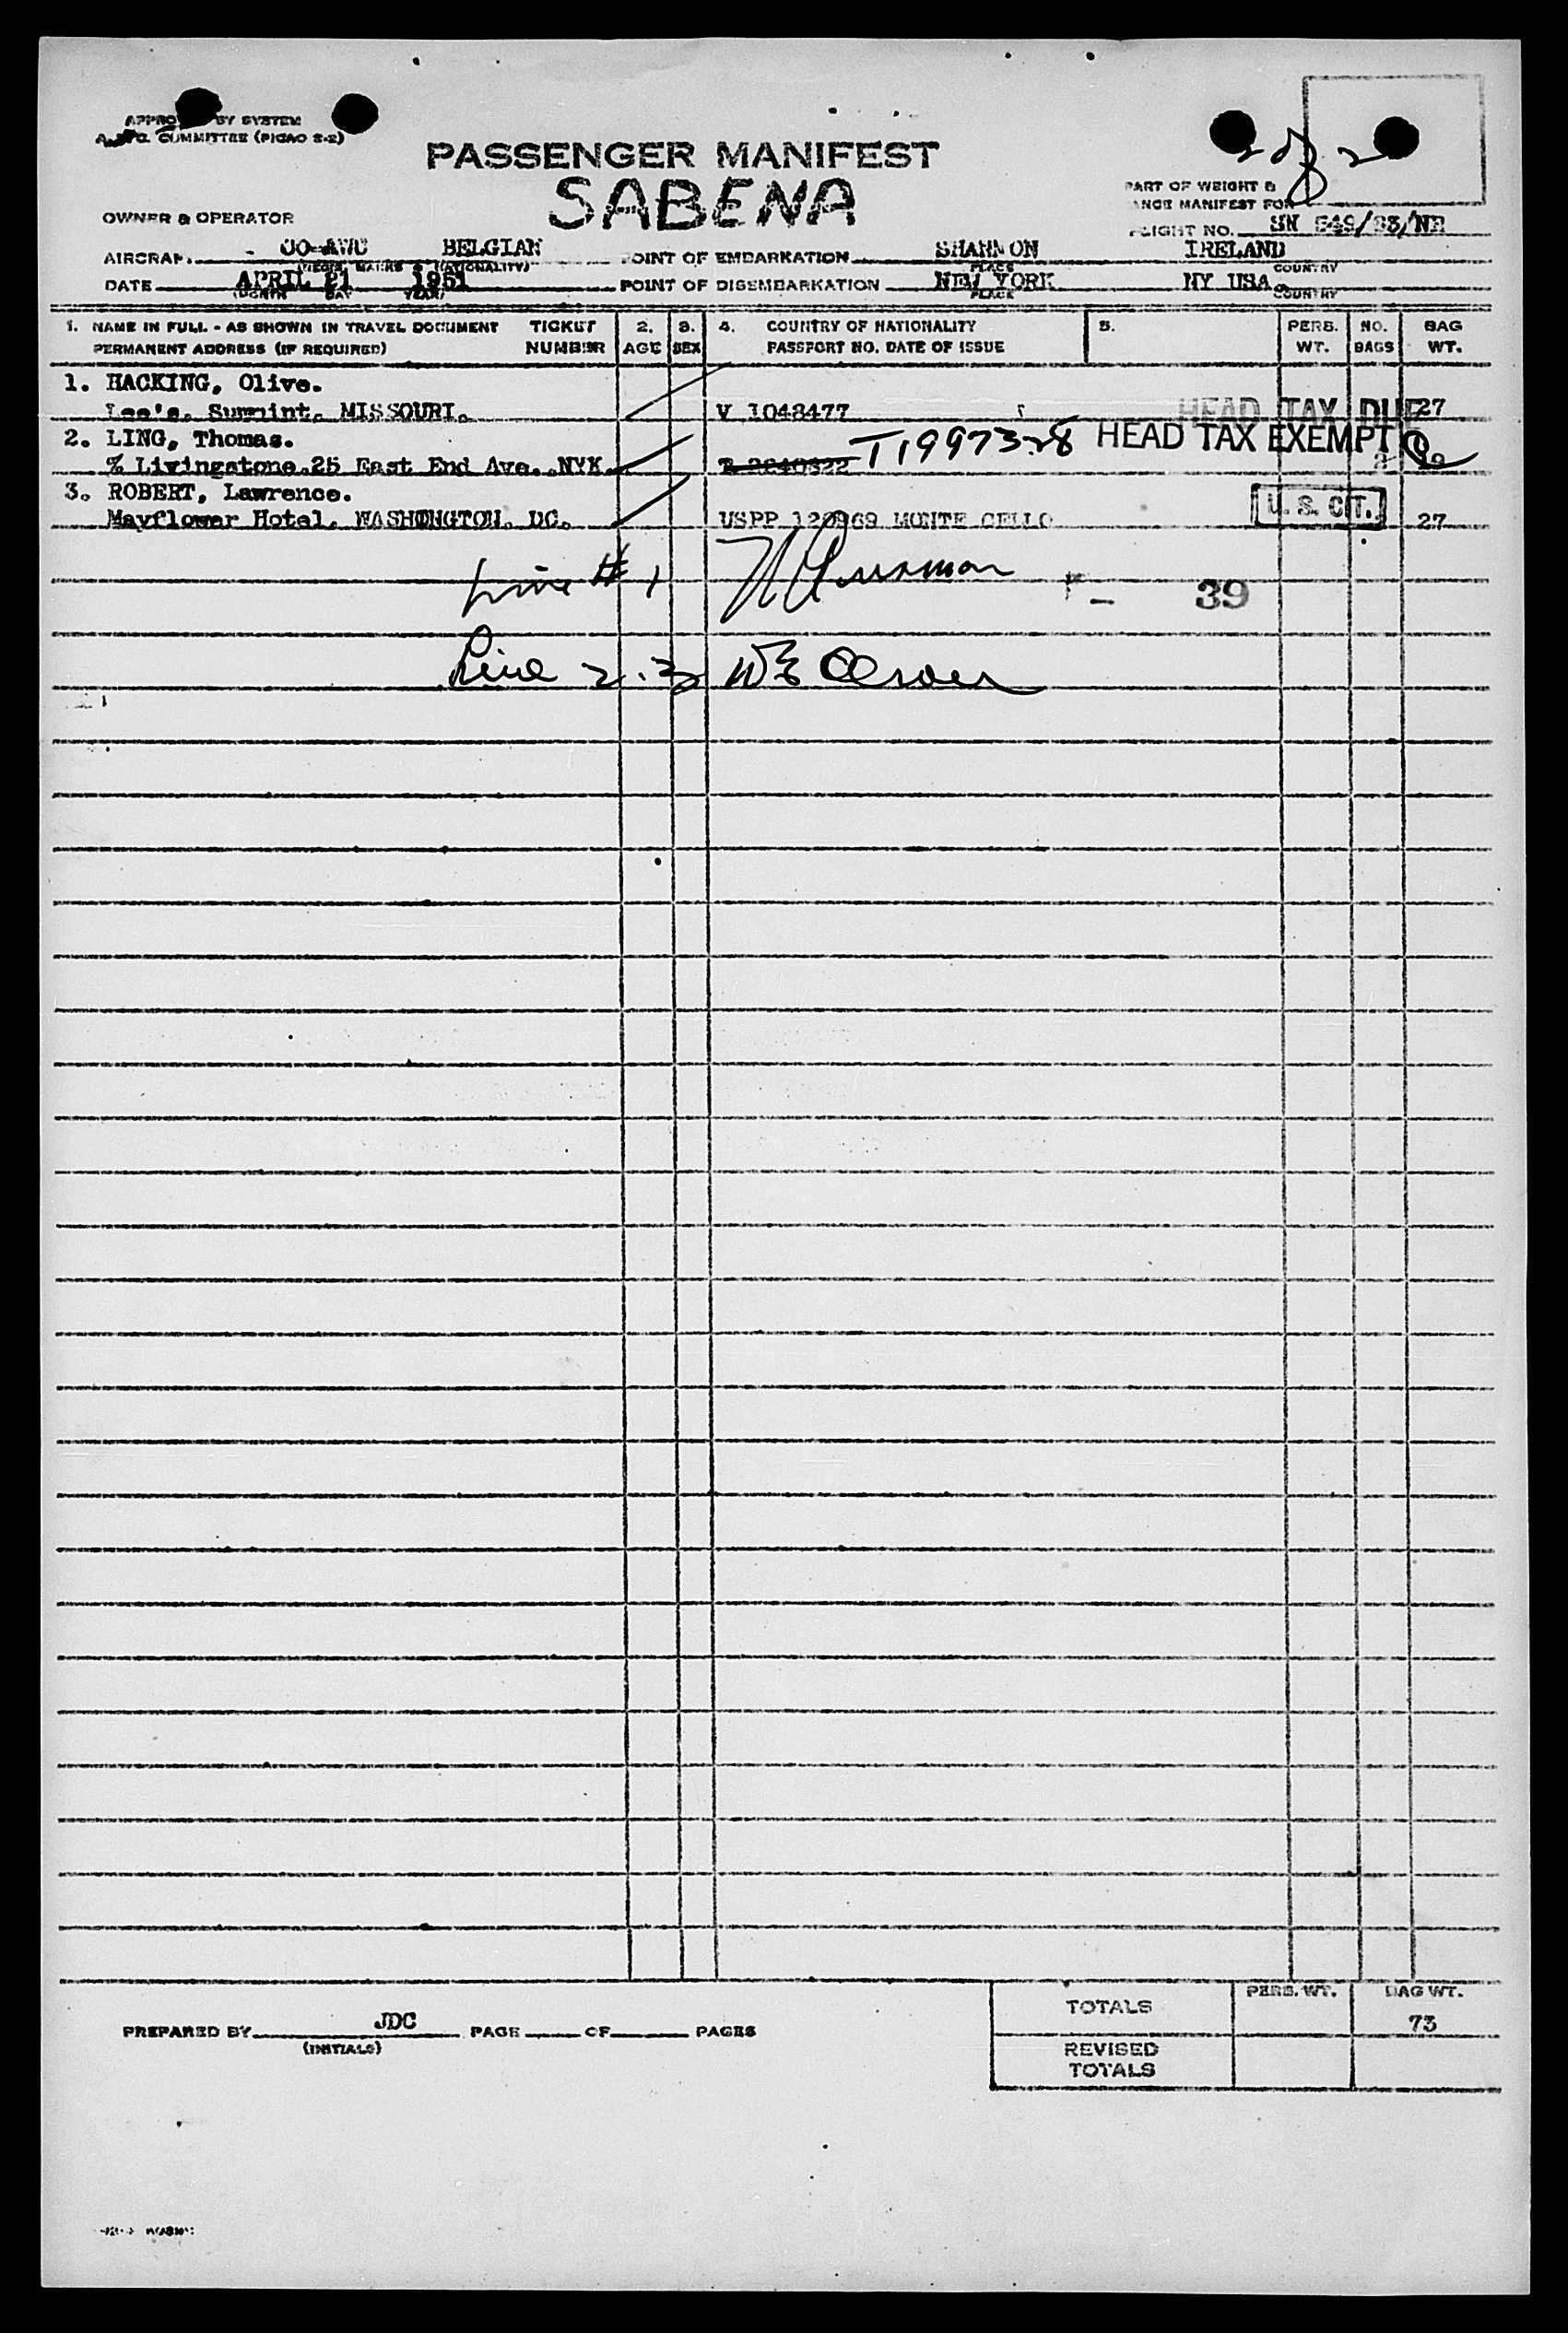 APPRO BY SYSTEM
COMMITTEE (PICAO S-2)
PASSENGER MANIFEST
SABENA
2 of 2
PART OF WEIGHT &
MANIFEST FOR
OWNER & OPERATOR
FLIGHT NO. SN 549/ /NR
AIRCRAF. OO-AWC BELGIAN POINT OF EMBARKATION SHANNON IRELAND
(REGIS. MARKS & NATIONALITY) PLACE COUNTRY
DATE APRIL 21 1951 POINT OF DISEMBARKATION NEW YORK NY USA.
(MONTH DAY YEAR) PLACE COUNTRY
1. NAME IN FULL - AS SHOWN IN TRAVEL DOCUMENT TICKET 2. 3. 4. COUNTRY OF NATIONALITY 5. PERS. NO. BAG
PERMANENT ADDRESS (IF REQUIRED) NUMBER AGE SEX PASSPORT NO. DATE OF ISSUE WT. BAGS WT.
1. HACKING, Olive.
Lee's. Summint. MISSOURI. V 1048477 HEAD TAX DUE 27
2. LING, Thomas. T1997328 HEAD TAX EXEMPT
% Livingstone.25 East End Ave. NYK.
3. ROBERT, Lawrence.
Mayflower Hotel. WASHINGTON. DC. USPP 120969 MONTE CELLO U. S. CIT. 27
Line # 1
39
Line 2.3
PREPARED BY JDC PAGE OF PAGES
(INITIALS)
TOTALS PERS. WT. BAG WT.
73
REVISED
TOTALS